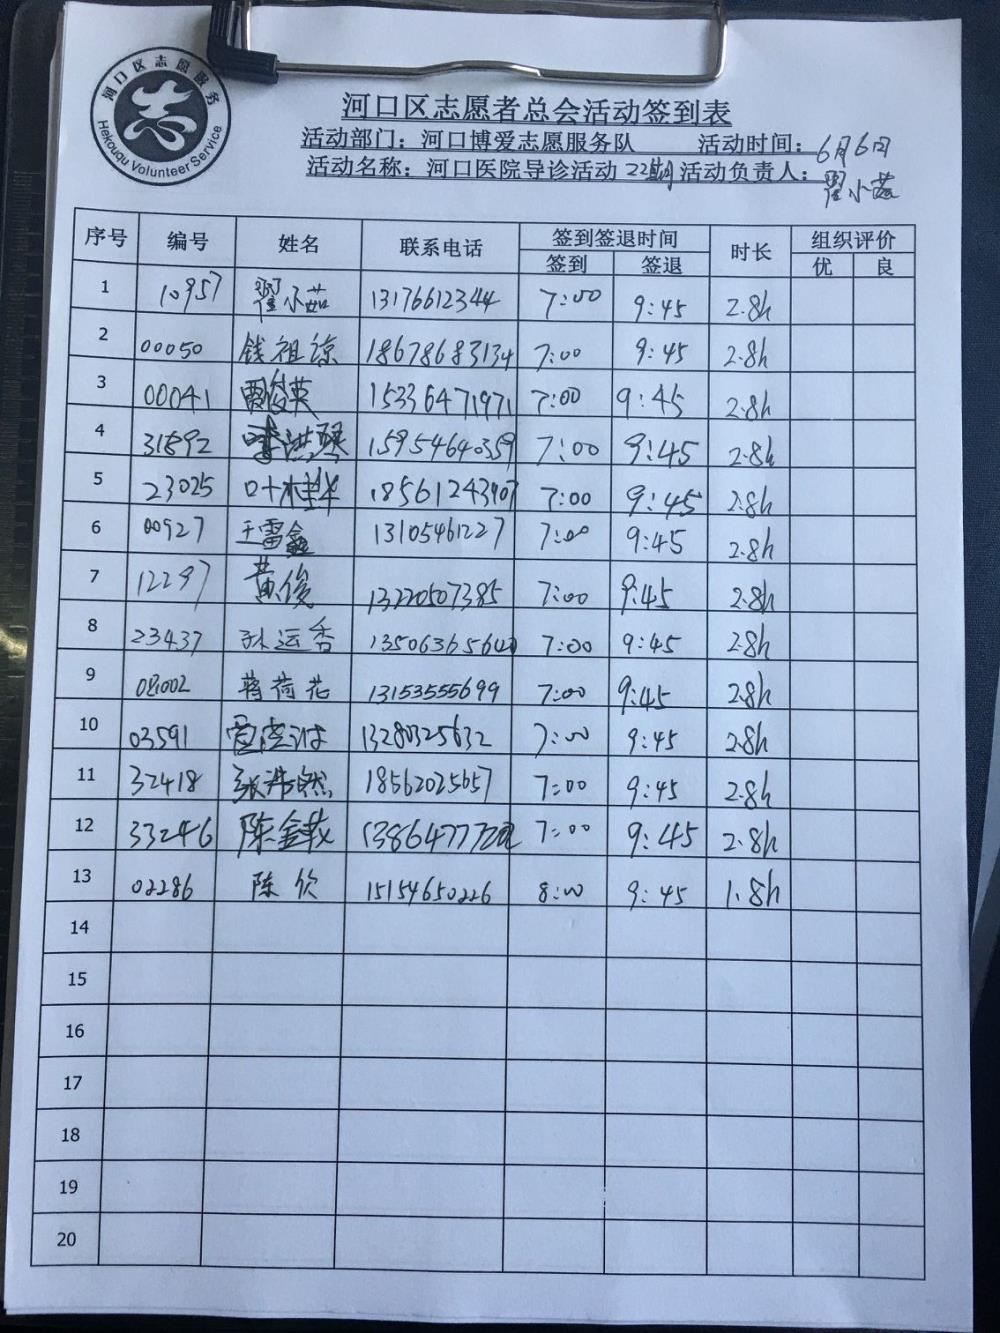 河口区志愿服务
志
Hekouqu Volunteer Service
河口区志愿者总会活动签到表
活动部门：河口博爱志愿服务队 活动时间：6月6日
活动名称：河口医院导诊活动 22期 活动负责人：翟小茹
序号 编号 姓名 联系电话 签到签退时间 时长 组织评价
签到 签退 优 良
1 10957 翟小茹 13176612344 7:00 9:45 2.8h
2 00050 钱祖谅 18678683134 7:00 9:45 2.8h
3 00041 贾俊英 15336471971 7:00 9:45 2.8h
4 31892 李洪琴 15954640359 7:00 9:45 2.8h
5 23025 叶桂华 18561243907 7:00 9:45 2.8h
6 00927 王雷鑫 13105461227 7:00 9:45 2.8h
7 12297 黄俊 13220507385 7:00 9:45 2.8h
8 23437 孙运香 7:00 9:45 2.8h
9 蒋荷花 13153555699 7:00 9:45 2.8h
10 03591 13280325632 7:00 9:45 2.8h
11 32418 张浩然 18562025657 7:00 9:45 2.8h
12 33246 7:00 9:45 2.8h
13 02286 陈欣 15154650226 8:00 9:45 1.8h
14
15
16
17
18
19
20